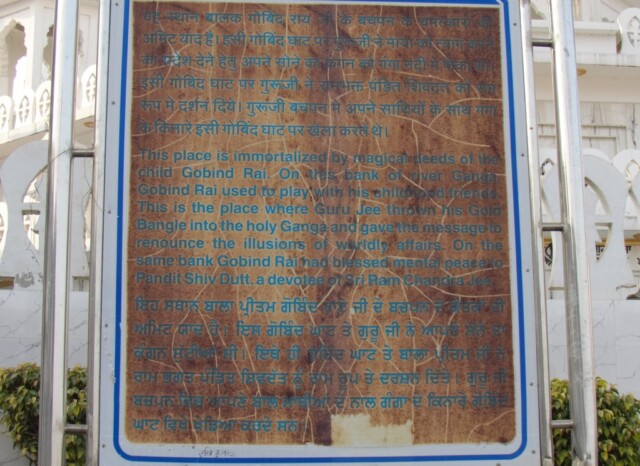 यह स्थान बालक गोबिंद राय जी के बचपन के चमत्कारों की
अमिट याद है। इसी गोबिंद घाट पर गुरू जी ने माया का त्याग करने
का संदेश देने हेतु अपने सोने का कंगन को गंगा नदी में फेंका था।
इसी गोबिंद घाट पर गुरूजी ने रामभक्त पंडित शिवदत्त को राम
रूप में दर्शन दिये। गुरूजी बचपन में अपने साथियों के साथ गंगा
के किनारे इसी गोबिंद घाट पर खेला करते थे।
This place is immortalized by magical deeds of the
child Gobind Rai. On this bank of river Ganga
Gobind Rai used to play with his childhood friends.
This is the place where Guru Jee thrown his Gold
Bangle into the holy Ganga and gave the message to
renounce the illusions of worldly affairs. On the
same bank Gobind Rai had blessed mental peace to
Pandit Shiv Dutt. a devotee of Sri Ram Chandra Jee.
ਇਹ ਸਥਾਨ ਬਾਲਾ ਪ੍ਰੀਤਮ ਗੋਬਿੰਦ ਰਾਏ ਜੀ ਦੇ ਬਚਪਨ ਦੇ ਕੌਤਕਾਂ ਦੀ
ਅਮਿਟ ਯਾਦ ਹੈ। ਇਸ ਗੋਬਿੰਦ ਘਾਟ ਤੇ ਗੁਰੂ ਜੀ ਨੇ ਆਪਣੇ ਸੋਨੇ ਦਾ
ਕੰਗਨ ਸੁਟਿਆ ਸੀ। ਇਸ ਹੀ ਗੋਬਿੰਦ ਘਾਟ ਤੇ ਬਾਲਾ ਪ੍ਰੀਤਮ ਜੀ ਨੇ
ਰਾਮ ਭਗਤ ਪੰਡਿਤ ਸ਼ਿਵਦੱਤ ਨੂੰ ਰਾਮ ਰੂਪ ਤੇ ਦਰਸ਼ਨ ਦਿੱਤੇ। ਗੁਰੂ ਜੀ
ਬਚਪਨ ਵਿਚ ਆਪਣੇ ਬਾਲ ਸਾਥੀਆਂ ਦੇ ਨਾਲ ਗੰਗਾ ਦੇ ਕਿਨਾਰੇ ਗੋਬਿੰਦ
ਘਾਟ ਵਿਖੇ ਖੇਡਿਆ ਕਰਦੇ ਸਨ।